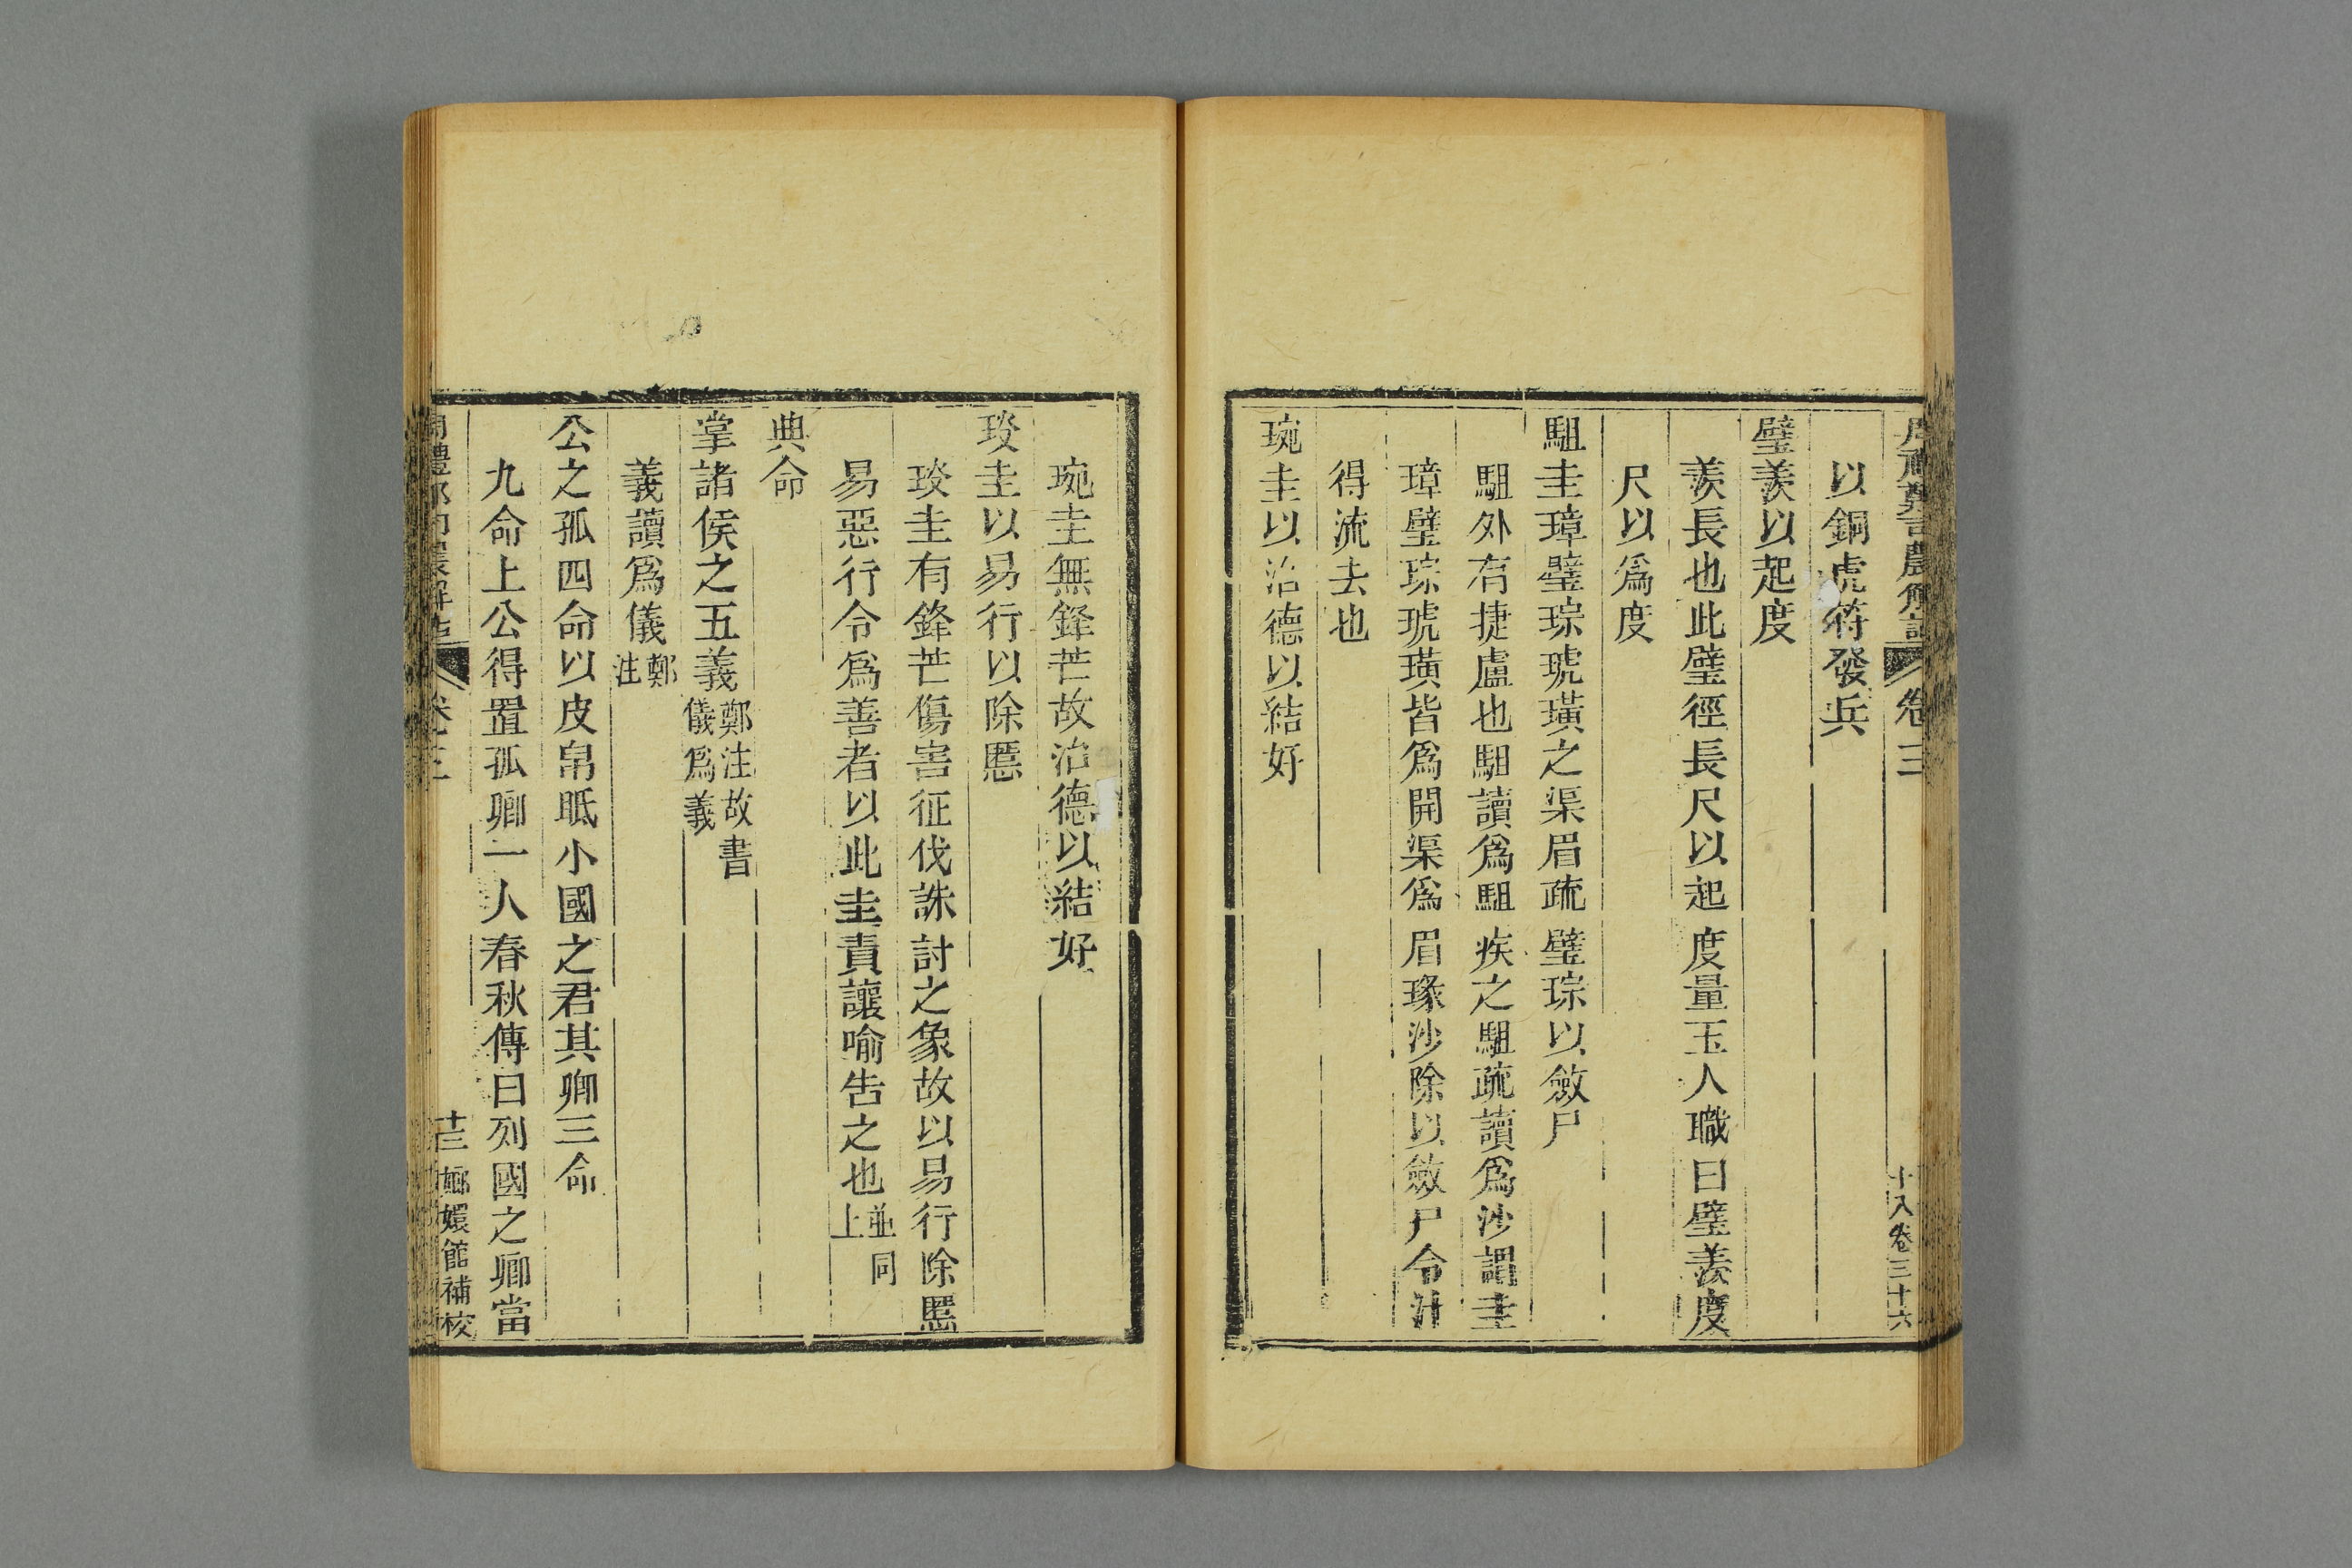 周禮鄭司農解詁 卷三 十八 卷三十六
以銅虎符發兵
璧羨以起度
羨長也此璧徑長尺以起度量玉人職曰璧羨度
尺以爲度
駔圭璋璧琮琥璜之渠眉疏璧琮以斂尸
駔外有捷盧也駔讀爲駔疾之駔疏讀爲沙謂圭
璋璧琮琥璜皆爲開渠爲眉瑑沙除以斂尸令汁
得流去也
琬圭以治德以結好
琬圭無鋒芒故治德以結好
琰圭以易行以除慝
琰圭有鋒芒傷害征伐誅討之象故以易行除慝
易惡行令爲善者以此圭責讓喻告之也並同上
典命
掌諸侯之五義鄭注故書儀爲義
義讀爲儀鄭注
公之孤四命以皮帛眡小國之君其卿三命
九命上公得置孤卿一人春秋傳曰列國之卿當
周禮鄭司農解詁 卷三 十三 嫏嬛館補校